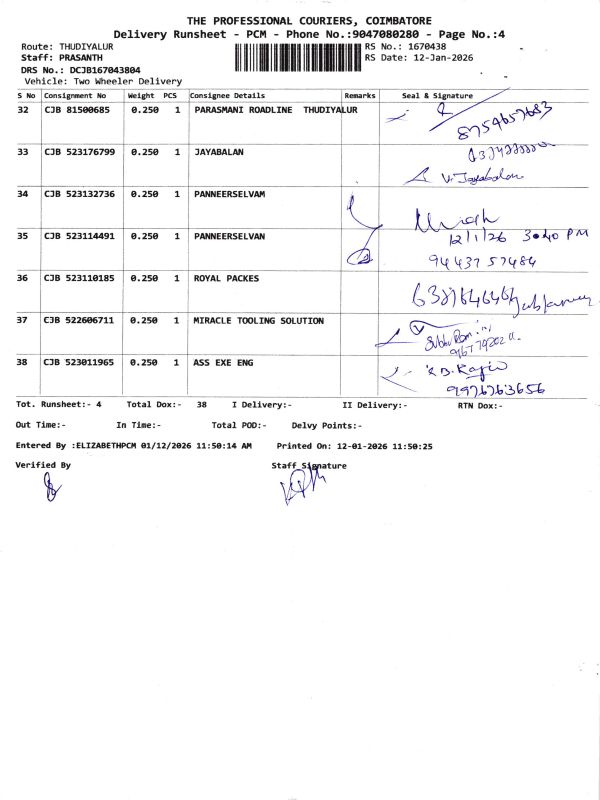 THE PROFESSIONAL COURIERS, COIMBATORE
Delivery Runsheet - PCM - Phone No.:9047080280 - Page No.:4
Route: THUDIYALUR
RS No.: 1670438
Staff: PRASANTH
RS Date: 12-Jan-2026
DRS No.: DCJB167043804
Vehicle: Two Wheeler Delivery
S No Consignment No Weight PCS Consignee Details Remarks Seal & Signature
32 CJB 81500685 0.250 1 PARASMANI ROADLINE THUDIYALUR
8754657683
33 CJB 523176799 0.250 1 JAYABALAN
V. Jayabalan
34 CJB 523132736 0.250 1 PANNEERSELVAM
35 CJB 523114491 0.250 1 PANNEERSELVAN
12/1/26 3.40 PM
9443757484
36 CJB 523110185 0.250 1 ROYAL PACKES
37 CJB 522606711 0.250 1 MIRACLE TOOLING SOLUTION
38 CJB 523011965 0.250 1 ASS EXE ENG
9976763656
Tot. Runsheet:- 4 Total Dox:- 38 I Delivery:- II Delivery:- RTN Dox:-
Out Time:- In Time:- Total POD:- Delvy Points:-
Entered By :ELIZABETHPCM 01/12/2026 11:50:14 AM Printed On: 12-01-2026 11:50:25
Verified By Staff Signature